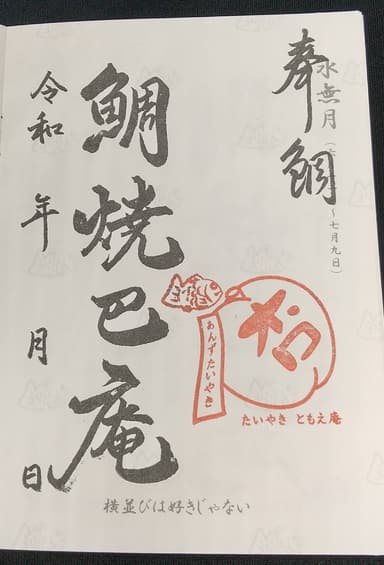 水無月（
～七月九日）
奉鯛
鯛焼巴庵
あんずたいやき
たいやき ともえ庵
令和 年 月 日
横並びは好きじゃない